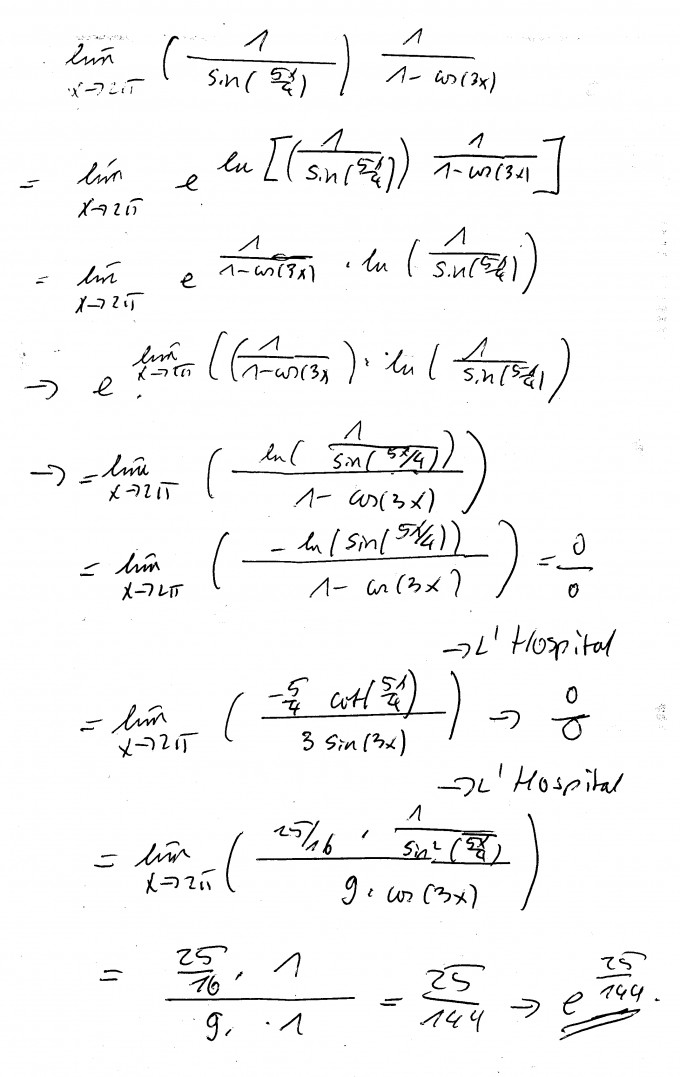 lim x→2π ( 1 / sin(5x/4) ) ^ 1 / (1-cos(3x))
= lim x→2π e ^ ln [ ( 1 / sin(5x/4) ) ^ 1 / (1-cos(3x) ]
= lim x→2π e ^ 1 / (1-cos(3x)) · ln ( 1 / sin(5x/4) )
→ e ^ lim x→2π ( ( 1 / (1-cos(3x) ) · ln ( 1 / sin(5x/4) )
→ = lim x→2π ( ln( 1 / sin(5x/4) ) / 1 - cos(3x) )
= lim x→2π ( -ln(sin(5x/4)) / 1 - cos(3x) ) = 0/0
→ L'Hospital
= lim x→2π ( -5/4 cot(5x/4) / 3 sin(3x) ) → 0/0
→ L'Hospital
= lim x→2π ( 25/16 · 1 / sin²(5x/4) / 9 · cos(3x) )
= 25/16 · 1 / 9 · · 1 = 25/144 → e ^ 25/144 .